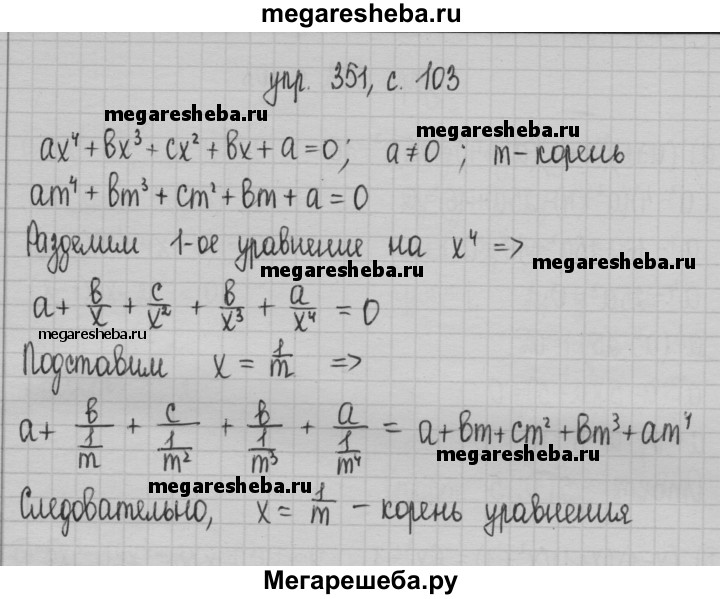 megaresheba.ru
упр. 351, с. 103
megaresheba.ru
megaresheba.ru
ax⁴ + вx³ + cx² + вx + a = 0; a ≠ 0 ; m - корень
am⁴ + вm³ + cm² + вm + a = 0
Разделим 1-ое уравнение на x⁴ =>
megaresheba.ru
megaresheba.ru
a + в/x + c/x² + в/x³ + a/x⁴ = 0
megaresheba.ru
Подставим x = 1/m =>
a + в/(1/m) + c/(1/m²) + в/(1/m³) + a/(1/m⁴) = a + вm + cm² + вm³ + am⁴
megaresheba.ru
megaresheba.ru
Следовательно, x = 1/m - корень уравнения
Мегарешеба.ру